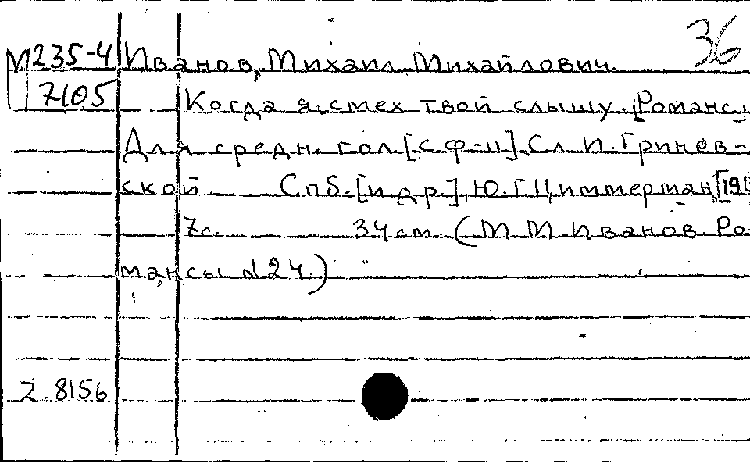 36
М 235-4 Иванов, Михаил Михайлович.
7105 Когда я смех твой слышу. [Романс.]
Для средн. гол. [с ф-п]. Сл. И. Гринев-
ской Спб. [и др.], Ю. Г. Циммерман, [191
7 с. 34 см. (М. М. Иванов. Ро-
мансы № 24.)
Z 8156